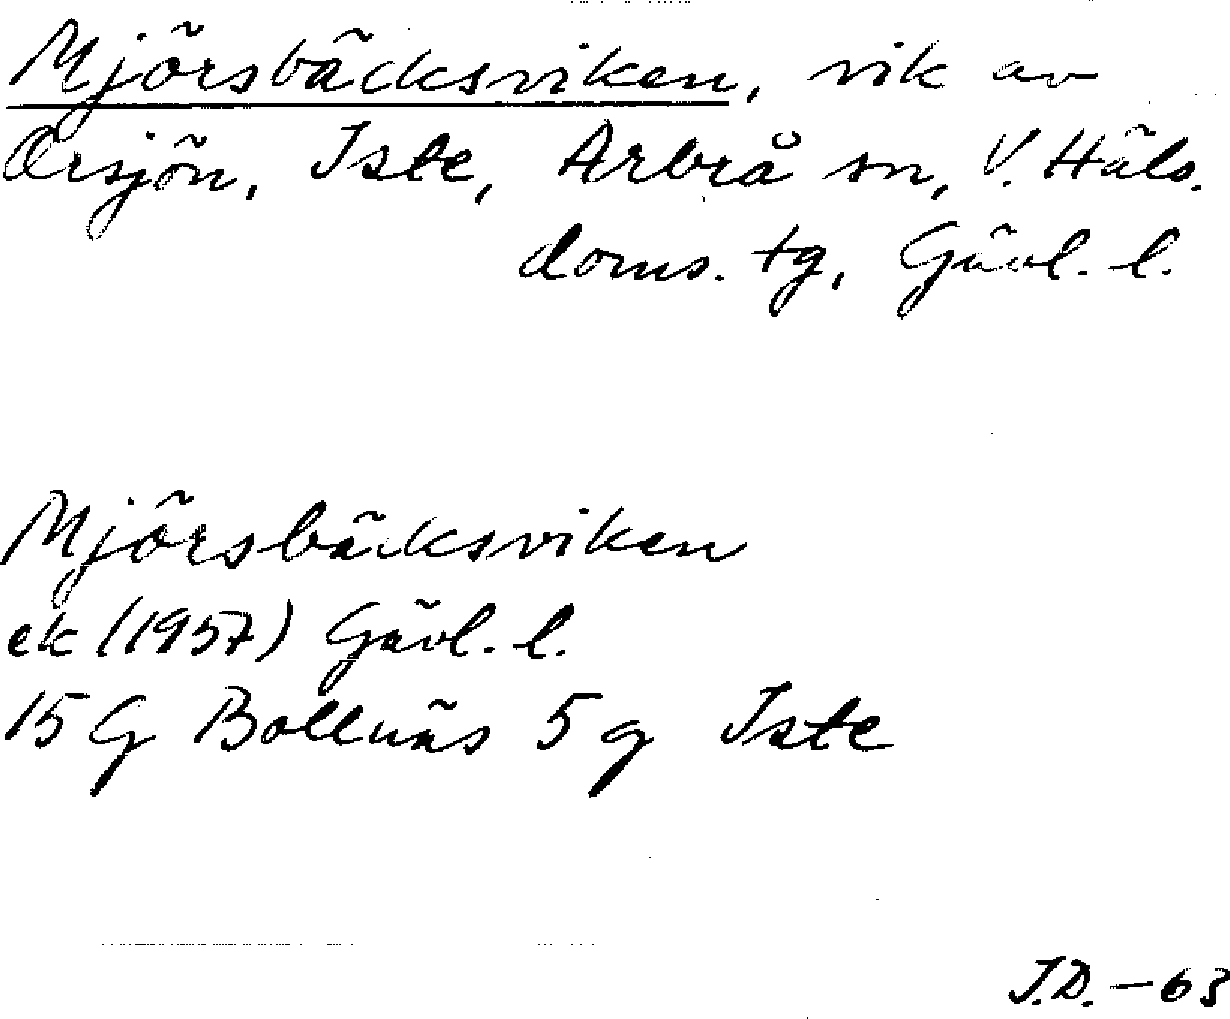 Mjörsbäcksviken, vik av
Orsjön, Iste, Arbrå sn, V. Häls.
doms. tg, Gävl. l.
Mjörsbäcksviken
ek (1957) Gävl. l.
15 G Bollnäs 5 g Iste
J.D. - 63